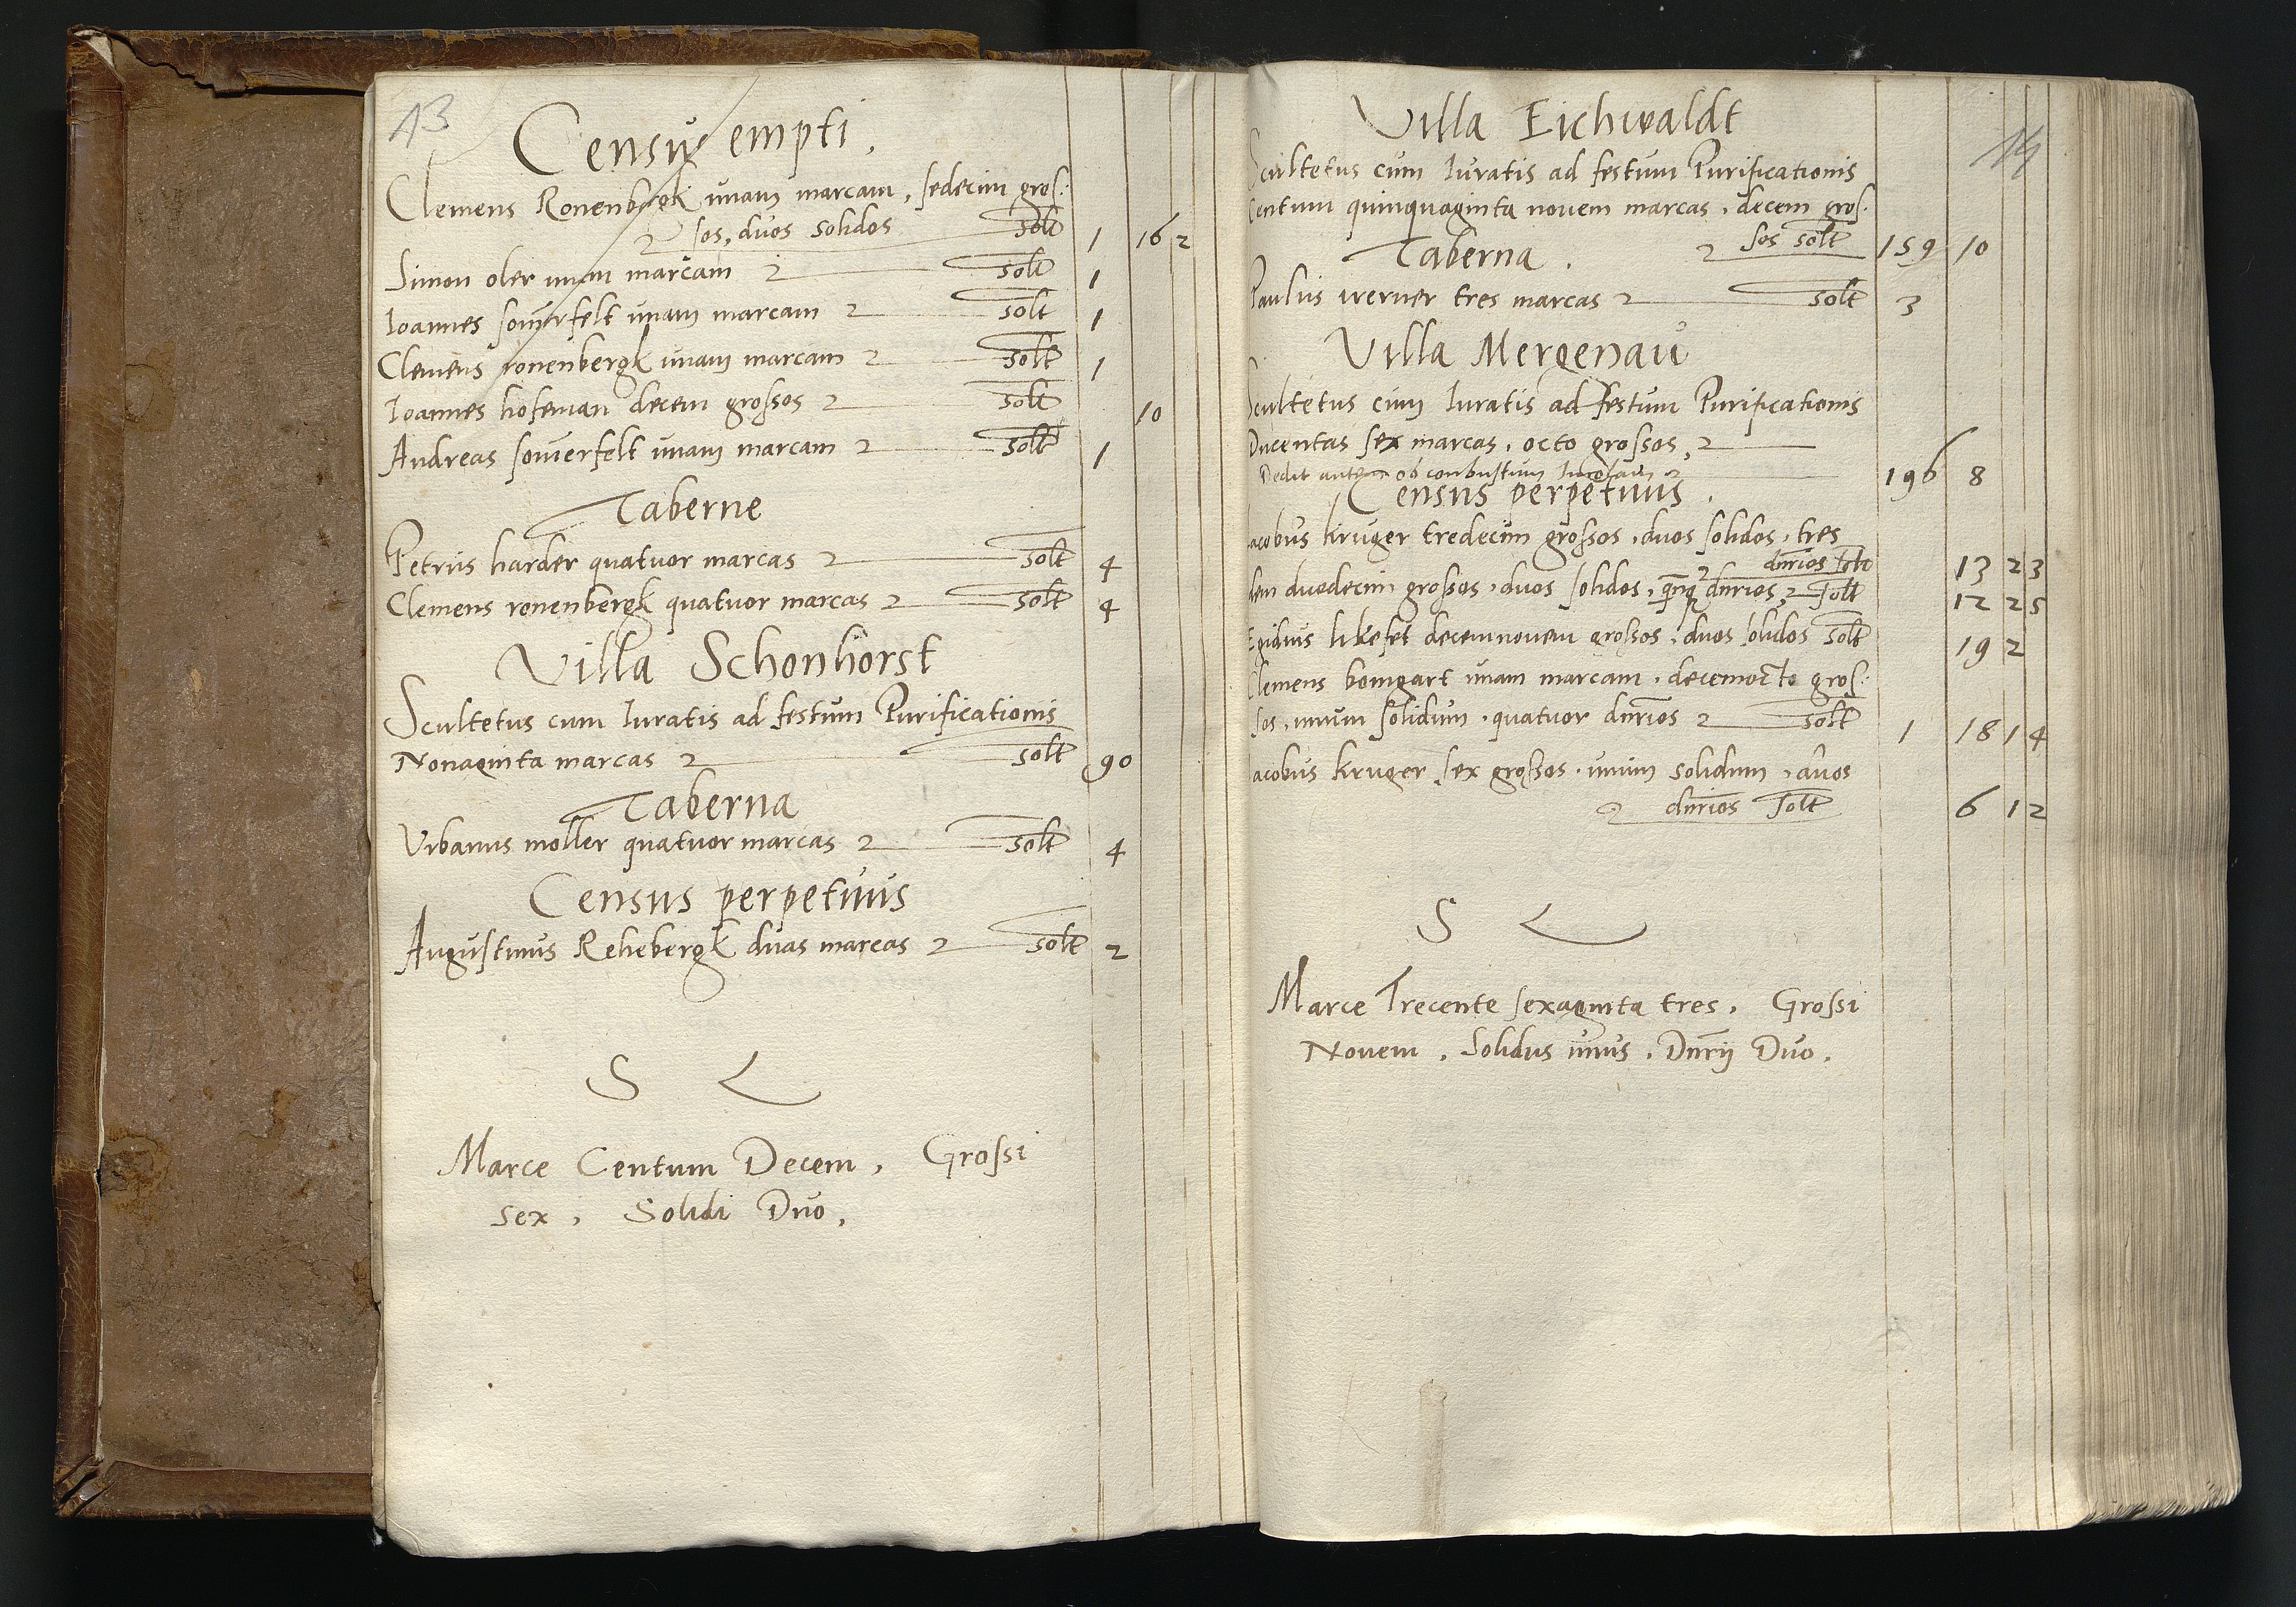 13
Census empti.
Clemens Ronenbergk unam marcam, sedecim gros:
sos, duos solidos solt 1 16 2
Simon oler unam marcam solt 1
Ioannes somerfelt unam marcam solt 1
Clemens ronenbergk unam marcam solt 1
Ioannes hofeman decem grossos solt 10
Andreas somerfelt unam marcam solt 1
Taberne
Petrus harder quatuor marcas solt 4
Clemens ronenbergk quatuor marcas solt 4
Villa Schonhorst
Scultetus cum Iuratis ad festum Purificationis
Nonaginta marcas solt 90
Taberna
Urbanus moller quatuor marcas solt 4
Census perpetuus
Augustinus Rehebergk duas marcas solt 2
S L
Marce Centum Decem, Grossi
sex, Solidi Duo,
14
Villa Eichwaldt
Scultetus cum Iuratis ad festum Purificationis
Centum quinquaginta novem marcas, decem gros.
sos solt 159 10
Taberna.
Paulus werner tres marcas solt 3
Villa Mergenau
Scultetus cum Iuratis ad festum Purificationis
Ducentas sex marcas, octo grossos,
Dedit autem ob conbustum 196 8
Census perpetuus.
Iacobus kruger tredecim grossos, duos solidos, tres
dnrios solt 13 2 3
Idem duodecim grossos, duos solidos, quinq dnrios, solt 12 2 5
Egidius likefet decemnovem grossos, duos solidos solt 19 2
Clemens bomgart unam marcam, decemocto gros:
sos, unum solidum, quatuor dnrios solt 1 18 1 4
Iacobus kruger sex grossos, unum solidum, duos
dnrios solt 6 1 2
S L
Marce Trecente sexaginta tres, Grossi
Novem, Solidus unus, Dnrij Duo,